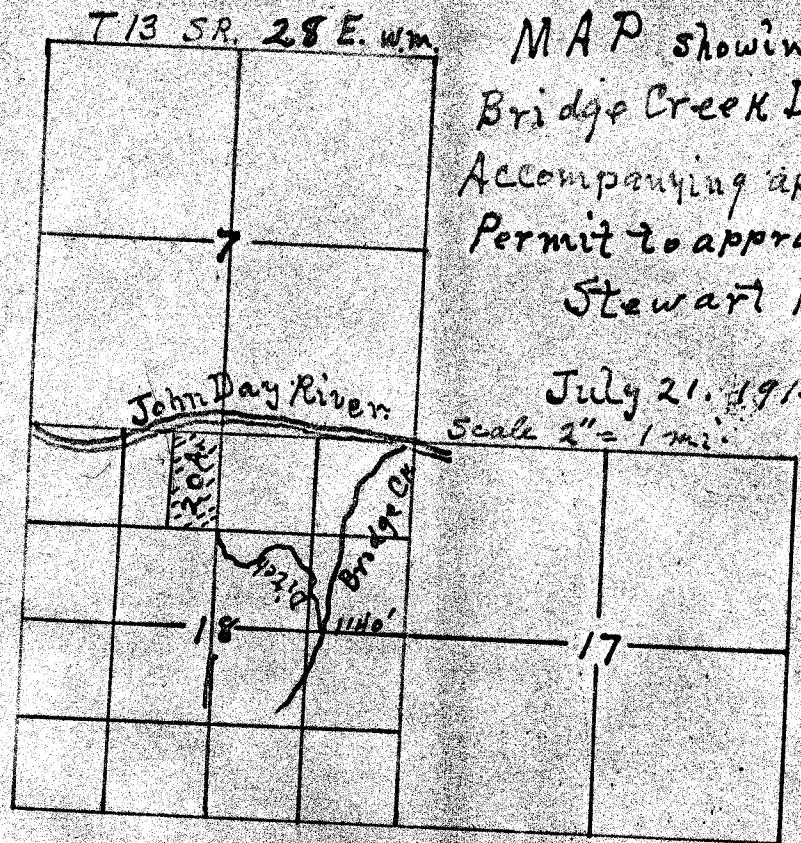 T 13 S R. 28 E. W.M.
MAP showin
Bridge Creek D
Accompanying ap
Permit to appro
Stewart
July 21. 191
Scale 2" = 1 mi.
7
John Day River
20A
Bridge Cr
Ditch
18
1140'
17